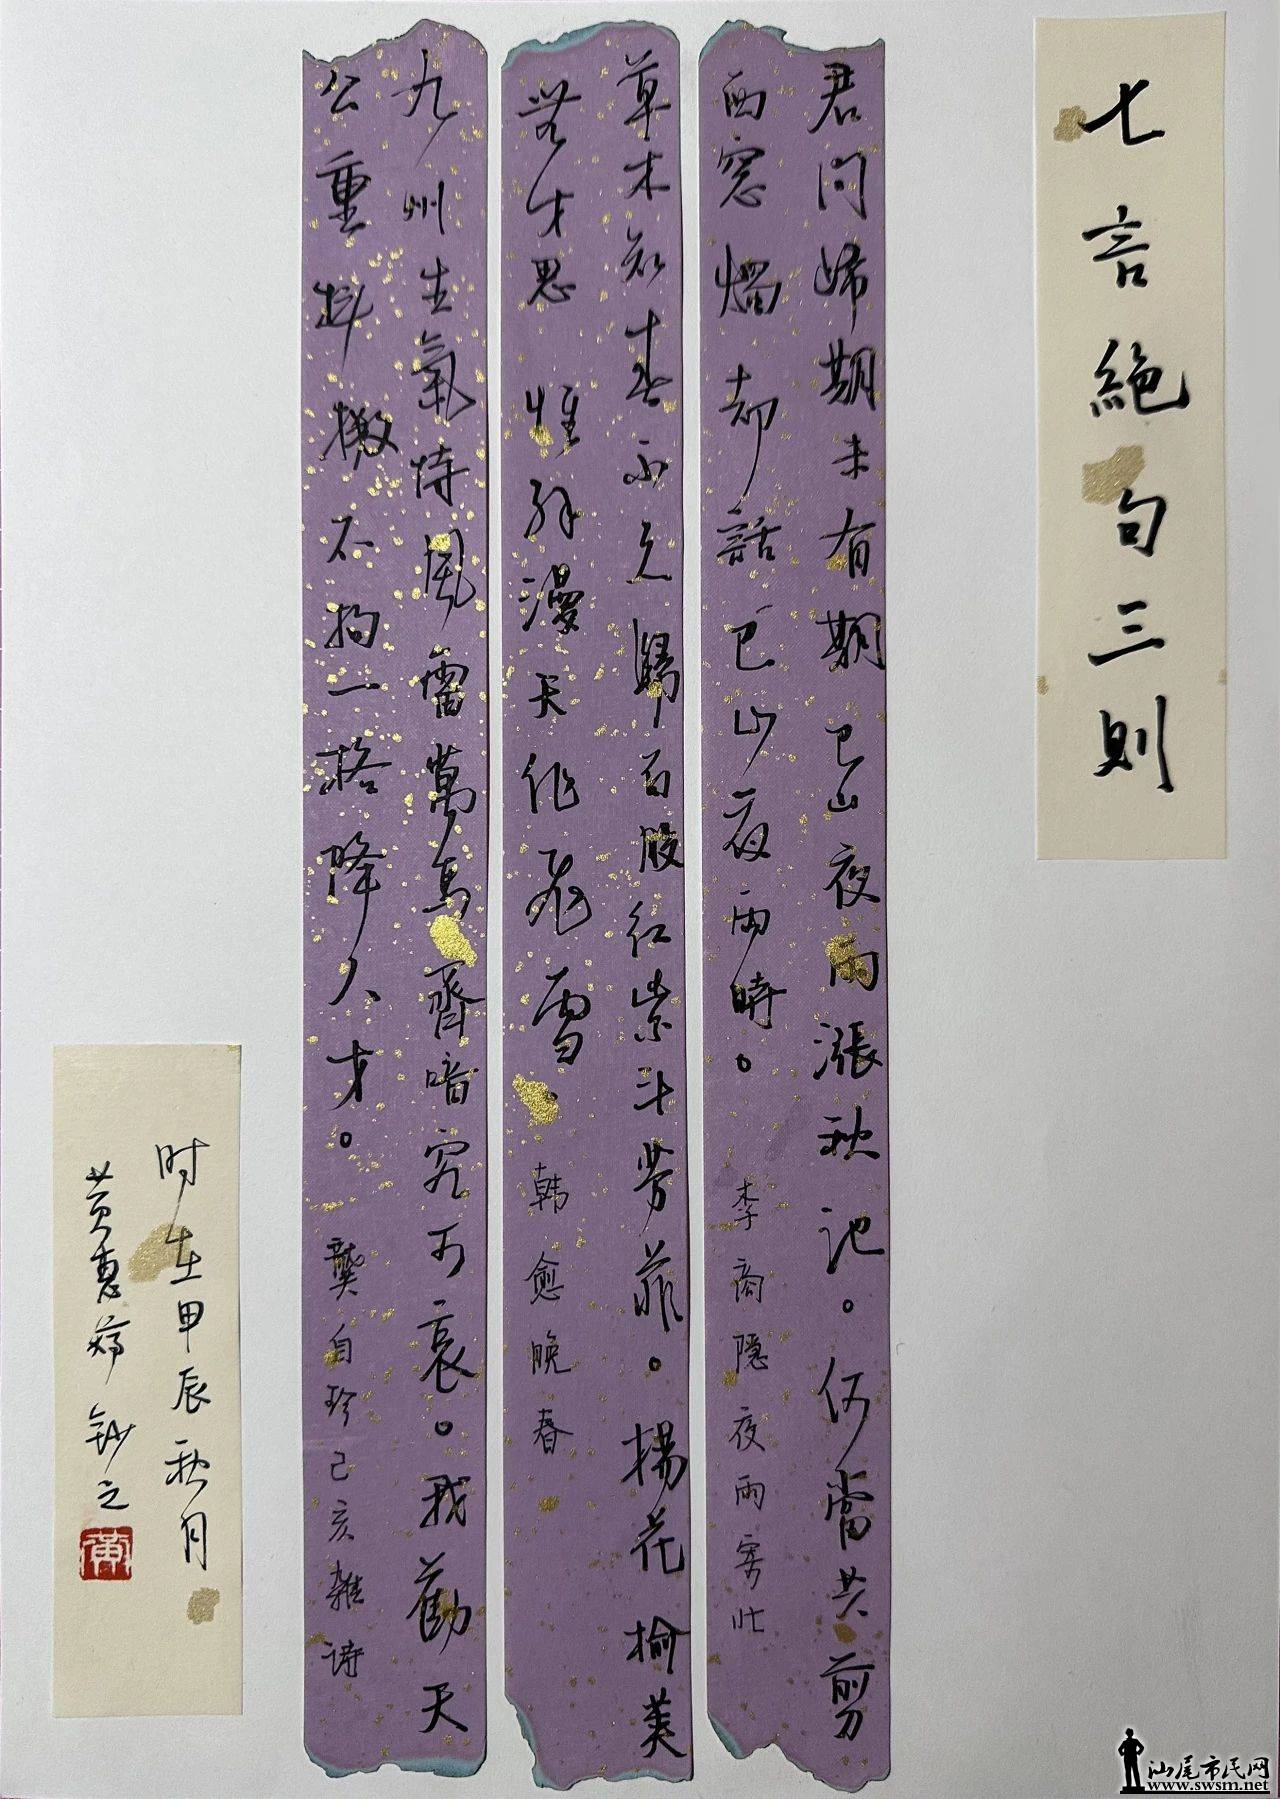 七言絕句三則
君問歸期未有期巴山夜雨漲秋池。何當共剪
西窓燭却話巴山夜雨時。李商隐夜雨寄北
草木知春不久歸百般红紫斗芳菲。楊花榆荚
無才思惟解漫天作飛雪、韩愈晚春
九州生氣恃風雷萬馬齊喑究可哀。我勸天
公重抖擞不拘一格降人才。龔自珍己亥雜诗
时在甲辰秋月
黄惠婷鈔之
黃
汕尾市民网
www.swsm.net